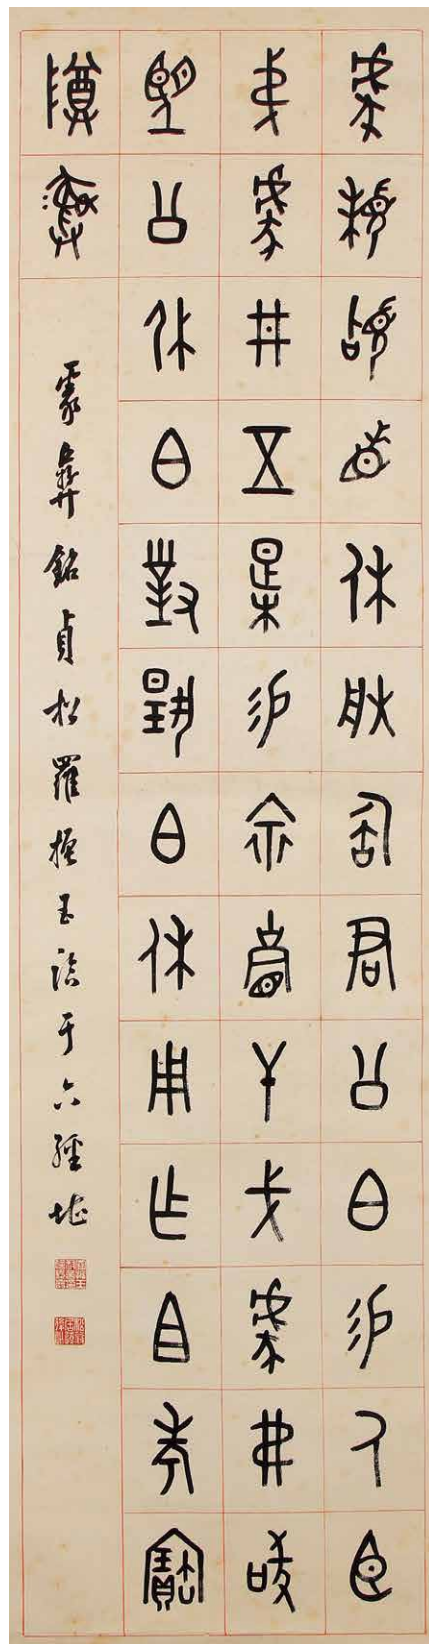 豦拜稽首休朕匋君公白易氒臣
弟豦井五易冑干戈豦弗敢
望公白休對揚白休用乍且考寶
尊彝
豦彝銘貞松羅振玉臨于六經堪